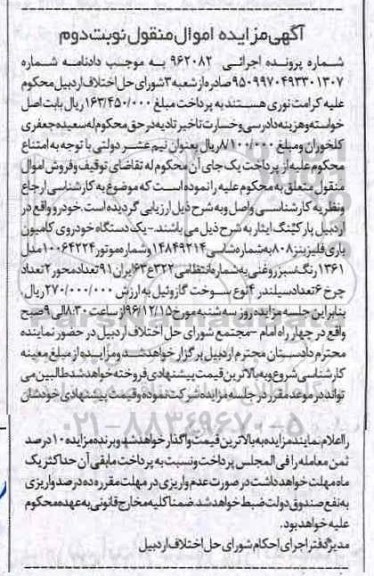 آگهی مزایده اموال منقول نوبت دوم
شماره پرونده اجرائی ۹۶۲۰۸۲ به موجب دادنامه شماره
۹۵۰۹۹۷۰۴۹۳۳۰۱۳۰۷ صادره از شعبه ۳ شورای حل اختلاف اردبیل محکوم
علیه کرامت نوری هستند به پرداخت مبلغ ۱۶۳/۴۵۰/۰۰۰ ریال بابت اصل
خواسته و هزینه دادرسی و خسارت تاخیر تادیه در حق محکوم له سعیده جعفری
کلخوران و مبلغ ۸/۱۰۰/۰۰۰ ریال بعنوان نیم عشر دولتی با توجه به امتناع
محکوم علیه از پرداخت یک جای آن محکوم له تقاضای توقیف و فروش اموال
منقول متعلق به محکوم علیه را نموده است که موضوع به کارشناسی ارجاع
و نظریه کارشناسی واصل و به شرح ذیل ارزیابی گردیده است. خودرو واقع در
اردبیل پارکینگ ایثار به شرح ذیل می باشند - یک دستگاه خودروی کامیون
باری فلیز بنز ۸۰۸ به شماره شاسی ۱۴۸۴۹۲۱۴ و شماره موتور ۱۰۰۶۴۲۲۴ مدل
۱۳۶۱ رنگ سبز روغنی به شماره انتظامی ۳۲۲ع۶۳ ایران ۹۱ تعداد محور ۲ تعداد
چرخ ۶ تعداد سیلندر ۴ نوع سوخت گازوئیل به ارزش ۲۷۰/۰۰۰/۰۰۰ ریال.
بنابراین جلسه مزایده روز سه شنبه مورخ ۹۶/۱۲/۱۵ از ساعت ۸:۳۰ الی ۹ صبح
واقع در چهار راه امام - مجتمع شورای حل اختلاف اردبیل در حضور نماینده
محترم دادستان محترم اردبیل برگزار خواهد شد و مزایده از مبلغ معینه
کارشناسی شروع و به بالاترین قیمت پیشنهادی فروخته خواهد شد طالبین می
تواند در موعد مقرر در جلسه مزایده شرکت نموده و قیمت پیشنهادی خودشان
۰۲۱-۸۸۳۴۹۶۷۰-۵
را اعلام نمایند مزایده به بالاترین قیمت واگذار خواهد شد و برنده مزایده ۱۰ درصد
ثمن معامله را فی المجلس پرداخت و نسبت به پرداخت مابقی آن حداکثر یک
ماه مهلت خواهد داشت در صورت عدم واریزی در مهلت مقرر ده درصد واریزی
به نفع صندوق دولت ضبط خواهد شد. ضمنا کلیه مخارج قانونی به عهده محکوم
علیه خواهد بود.
مدیر دفتر اجرای احکام شورای حل اختلاف اردبیل